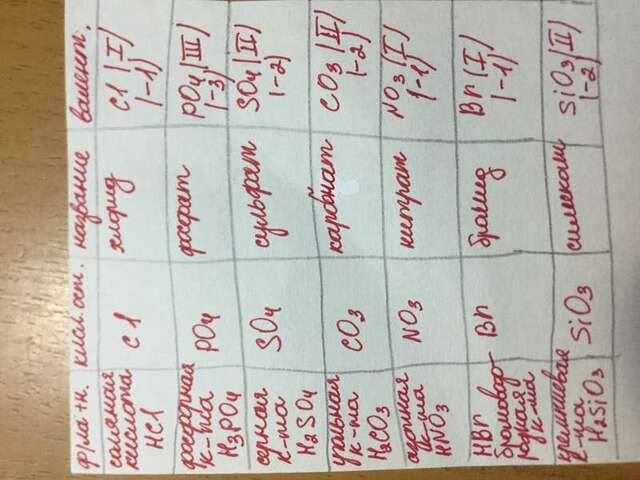 ф/ла+н. кисл. ост. название валент.
соляная
кислота
HCl
Cl
хлорид
Cl (I)
(-1)
фосфорная
к-та
H3PO4
PO4
фосфат
PO4 (III)
(-3)
серная
к-та
H2SO4
SO4
сульфат
SO4 (II)
(-2)
угольная
к-та
H2CO3
CO3
карбонат
CO3 (II)
(-2)
азотная
к-та
HNO3
NO3
нитрат
NO3 (I)
(-1)
HBr
бромовод-
родная
к-та
Br
бромид
Br (I)
(-1)
кремниевая
к-та
H2SiO3
SiO3
силикат
SiO3 (II)
(-2)